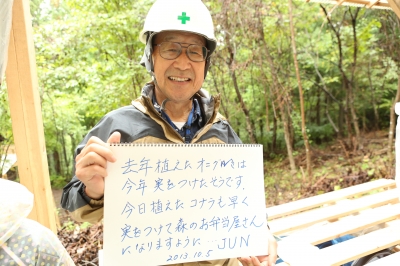 去年植えたオニグルミは
今年実をつけたそうです。
今日植えたコナラも早く
実をつけて森のお弁当屋さん
になりますように JUN
2013.10.5